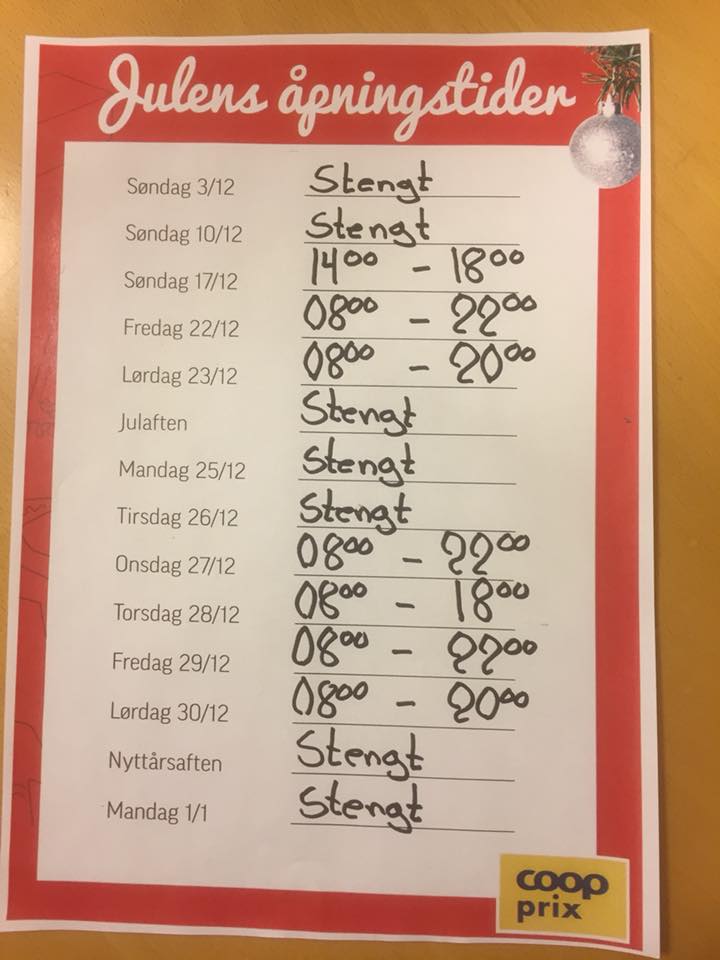 Julens åpningstider
Søndag 3/12 Stengt
Søndag 10/12 Stengt
Søndag 17/12 14⁰⁰ - 18⁰⁰
Fredag 22/12 08⁰⁰ - 22⁰⁰
Lørdag 23/12 08⁰⁰ - 20⁰⁰
Julaften Stengt
Mandag 25/12 Stengt
Tirsdag 26/12 Stengt
Onsdag 27/12 08⁰⁰ - 22⁰⁰
Torsdag 28/12 08⁰⁰ - 18⁰⁰
Fredag 29/12 08⁰⁰ - 22⁰⁰
Lørdag 30/12 08⁰⁰ - 20⁰⁰
Nyttårsaften Stengt
Mandag 1/1 Stengt
coop
prix